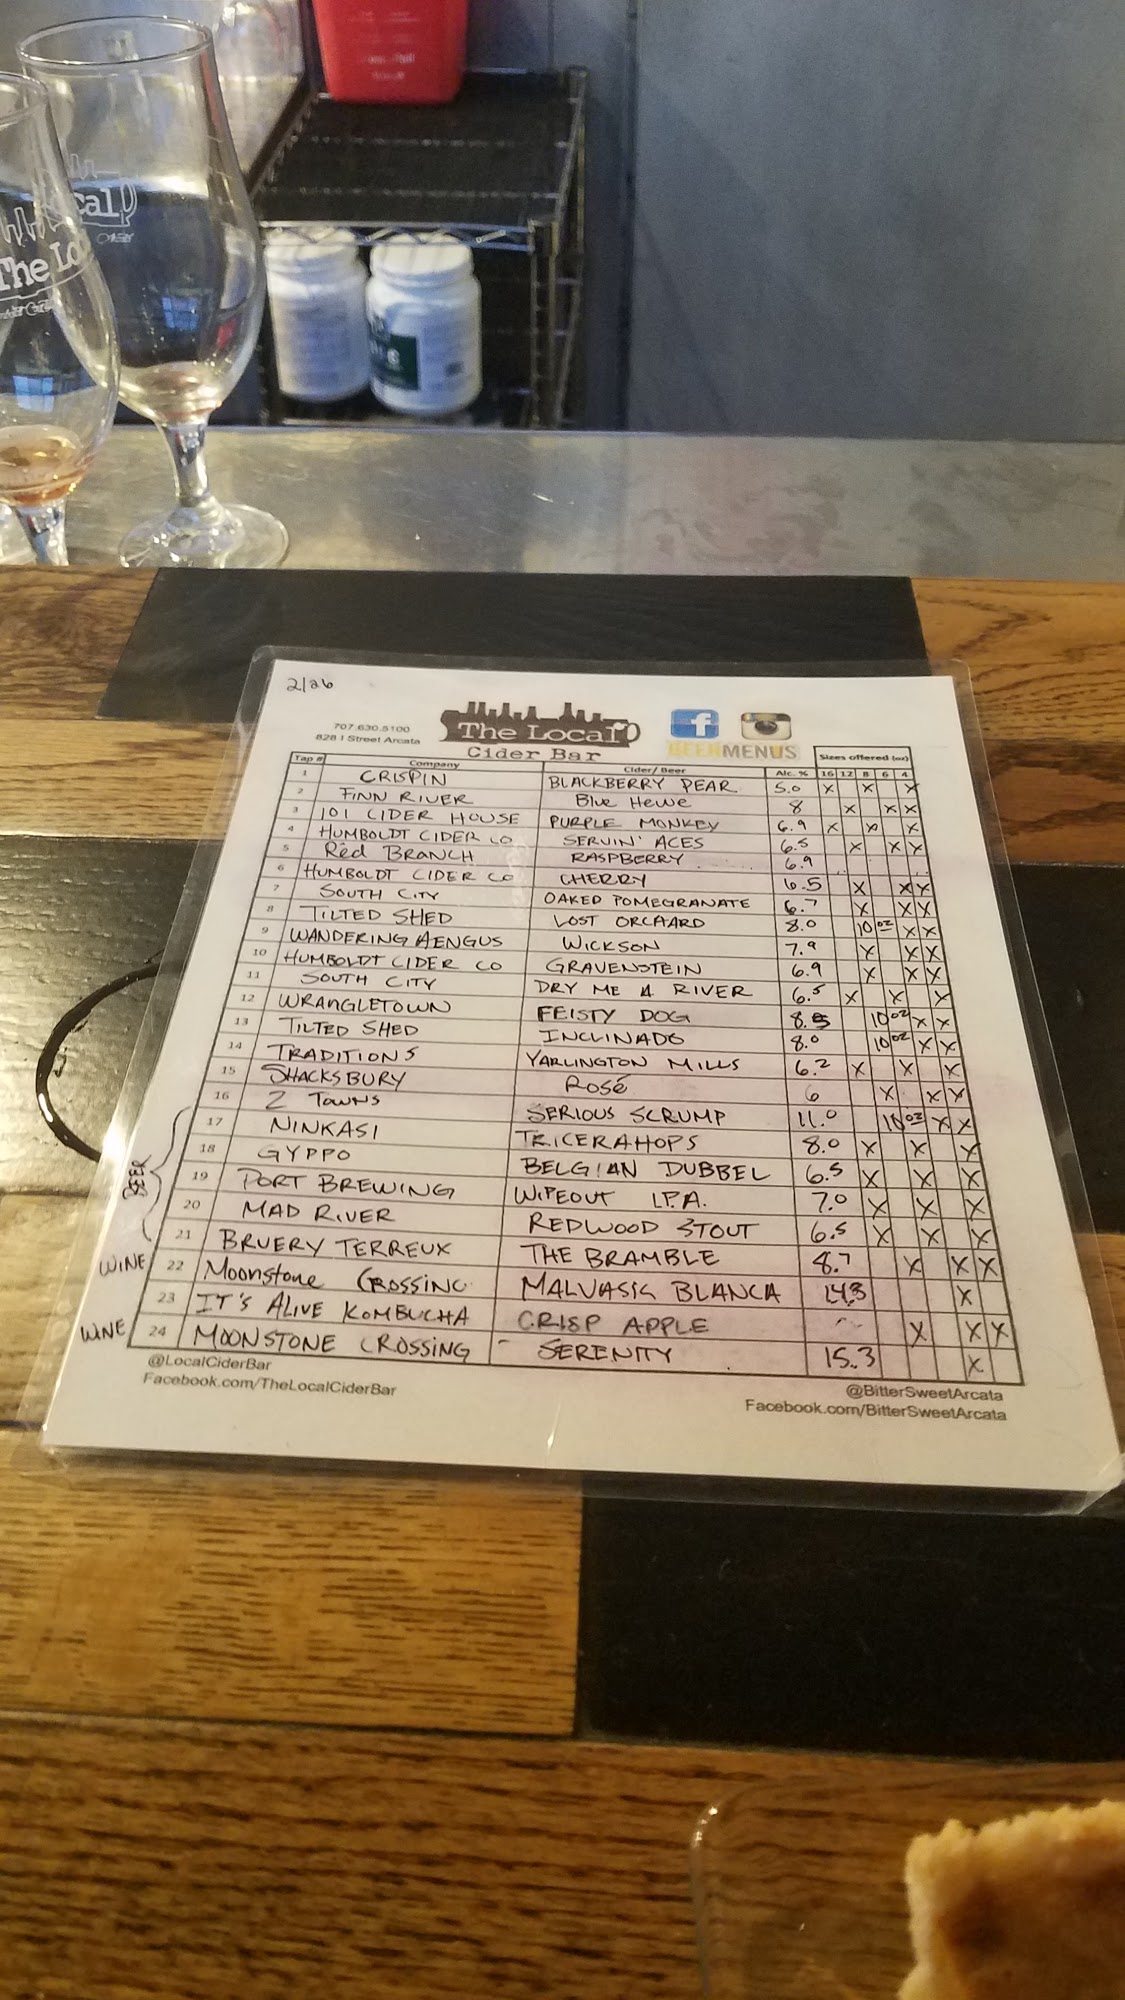 cal
The Lo
2/26
707.630.5100
828 I Street Arcata
The Local
Cider Bar
BEERMENUS
Tap # Company Cider/Beer Alc. % Sizes offered (oz)
16 12 8 6 4
1 CRISPIN BLACKBERRY PEAR 5.0 X X X
2 FINN RIVER Blue Hewe 8 X X X
3 101 CIDER HOUSE PURPLE MONKEY 6.9 X X X
4 HUMBOLDT CIDER CO SERVIN' ACES 6.5 X X X
5 Red BRANCH RASPBERRY 6.9
6 HUMBOLDT CIDER CO CHERRY 6.5 X X X
7 SOUTH CITY OAKED POMEGRANATE 6.7 X X X
8 TILTED SHED LOST ORCHARD 8.0 10 oz X X
9 WANDERING AENGUS WICKSON 7.9 X X X
10 HUMBOLDT CIDER CO GRAVENSTEIN 6.9 X X X
11 SOUTH CITY DRY ME A RIVER 6.5 X X X
12 WRANGLETOWN FEISTY DOG 8.5 10 oz X X
13 TILTED SHED INCLINADO 8.0 10 oz X X
14 TRADITIONS YARLINGTON MILLS 6.2 X X X
15 SHACKSBURY Rosé 6 X X X
16 2 TOWNS SERIOUS SCRUMP 11.0 10 oz X X
17 NINKASI TRICERAHOPS 8.0 X X X
18 GYPPO BELGIAN DUBBEL 6.5 X X X
BEER 19 PORT BREWING WIPEOUT I.P.A. 7.0 X X X
20 MAD RIVER REDWOOD STOUT 6.5 X X X
21 BRUERY TERREUX THE BRAMBLE 8.7 X X X
WINE 22 Moonstone CROSSING MALVASIA BLANCA 14.3 X
23 IT'S ALIVE KOMBUCHA CRISP APPLE X X X
WINE 24 MOONSTONE CROSSING - SERENITY 15.3 X
@LocalCiderBar
Facebook.com/TheLocalCiderBar
@BitterSweetArcata
Facebook.com/BitterSweetArcata